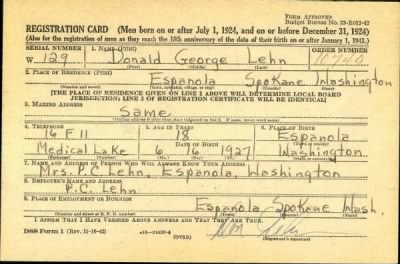 FORM APPROVED
Budget Bureau No. 33-R012-42
REGISTRATION CARD—(Men born on or after July 1, 1924, and on or before December 31, 1924)
(Also for the registration of men as they reach the 18th anniversary of the date of their birth on or after January 1, 1943.)
SERIAL NUMBER 1. NAME (Print) ORDER NUMBER
W 129 Donald George Lehn 10740
(First) (Middle) (Last)
2. PLACE OF RESIDENCE (Print)
Espanola Spokane Washington
(Number and street) (Town, township, village, or city) (County) (State)
[THE PLACE OF RESIDENCE GIVEN ON LINE 2 ABOVE WILL DETERMINE LOCAL BOARD
JURISDICTION; LINE 2 OF REGISTRATION CERTIFICATE WILL BE IDENTICAL]
3. MAILING ADDRESS
Same
4. TELEPHONE 5. AGE IN YEARS 6. PLACE OF BIRTH
16 F 11 18 Espanola
DATE OF BIRTH
Medical Lake 6 16 1927 Washington
(Exchange) (Number) (Mo.) (Day) (Yr.) (State or country)
7. NAME AND ADDRESS OF PERSON WHO WILL ALWAYS KNOW YOUR ADDRESS
Mrs. P.C. Lehn, Espanola, Washington
8. EMPLOYER'S NAME AND ADDRESS
P.C. Lehn
9. PLACE OF EMPLOYMENT OR BUSINESS
Espanola Spokane Wash.
(Number and street or R. F. D. number) (Town) (County) (State)
I AFFIRM THAT I HAVE VERIFIED ABOVE ANSWERS AND THAT THEY ARE TRUE.
DSS Form 1 (Rev. 11-16-42) (OVER) Don Lehn